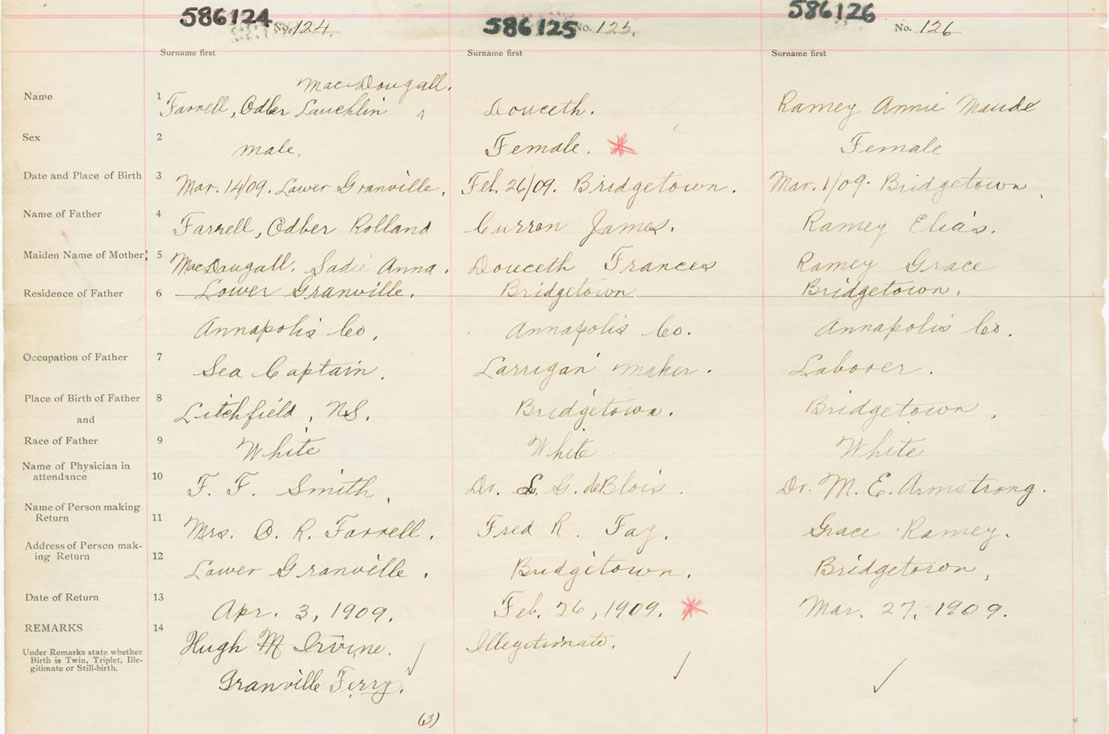 586124 No. 124. 586125 No. 125. 586126 No. 126
Surname first Surname first Surname first
MacDougall.
Name 1 Farrell, Odber Lauchlin Douceth. Ramey Annie Maude
Sex 2 male. Female. * Female
Date and Place of Birth 3 Mar. 14/09. Lower Granville. Feb. 26/09. Bridgetown. Mar. 1/09. Bridgetown.
Name of Father 4 Farrell, Odber Rolland Curren James. Ramey Elias.
Maiden Name of Mother: 5 MacDougall. Sadie Anna. Douceth Frances Ramey Grace
Residence of Father 6 Lower Granville. Bridgetown Bridgetown.
Annapolis Co. Annapolis Co. Annapolis Co.
Occupation of Father 7 Sea Captain. Larrigan maker. Laborer.
Place of Birth of Father 8 Litchfield, N.S. Bridgetown. Bridgetown.
and
Race of Father 9 White White White
Name of Physician in
attendance 10 F. F. Smith. Dr. L. G. deBlois. Dr. M. E. Armstrong.
Name of Person making
Return 11 Mrs. O. R. Farrell. Fred R. Fay. Grace Ramey.
Address of Person mak-
ing Return 12 Lower Granville. Bridgetown. Bridgetown,
Date of Return 13 Apr. 3, 1909. Feb. 26, 1909. * Mar. 27, 1909.
REMARKS 14 Hugh M Irvine. Illegitimate.
Under Remarks state whether
Birth is Twin, Triplet, Ille-
gitimate or Still-birth.
Granville Ferry.
(3)